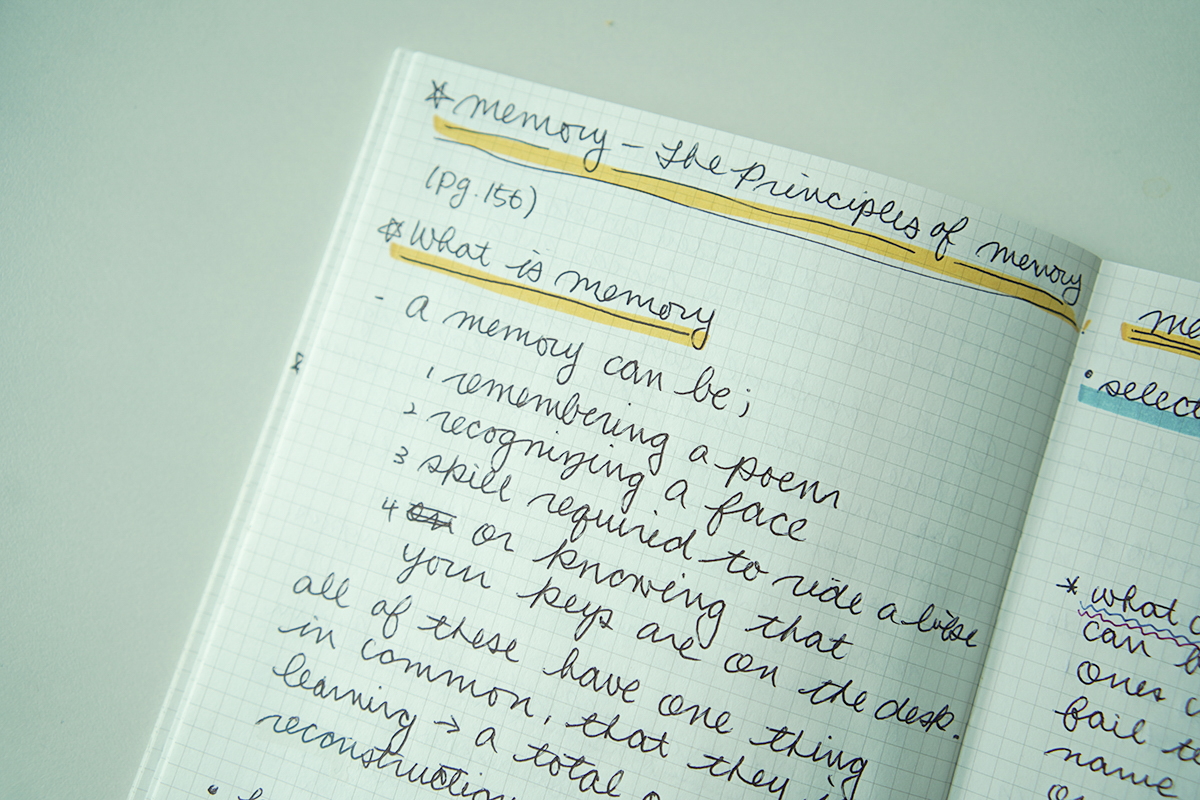 memory - The Principles of memory
(pg. 156)
What is memory
- A memory can be;
1 remembering a poem
2 recognizing a face
3 skill required to ride a bike
4 or knowing that
your keys are on the desk.
all of these have one thing
in common, that they
learning → a total
reconstruction
• select
* what
can
ones
fail
name